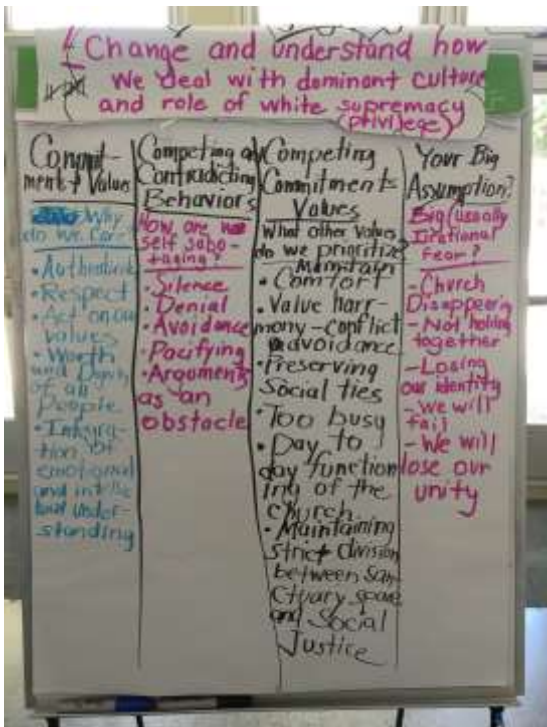 Change and understand how
We deal with dominant culture
and role of white supremacy
(privilege)
Commit-
ment + Values
Why
do we Care?
• Authenticity
• Respect
• Act on our
values
• Worth
and Dignity
of all
people
• Integra-
tion of
emotional
and intellec
tual under-
standing
Competing or
Contradicting
Behaviors
How are we
self sabo-
taging?
• Silence
• Denial
• Avoidance
• Pacifying
• Arguments
as an
obstacle
Competing
Commitments
Values
What other values
do we prioritize?
Maintain
• Comfort
• Value harr-
mony - conflict
avoidance
• Preserving
Social ties
• Too busy
• Day to
day function
ing of the
church
• Maintaining
strict division
between San-
ctuary space
and Social
Justice
Your Big
Assumption?
Big (usually
Irrational
Fear?
- Church
Disappearing
- Not holding
together
- Losing
our identity
- We will
fail
- We will
lose our
unity